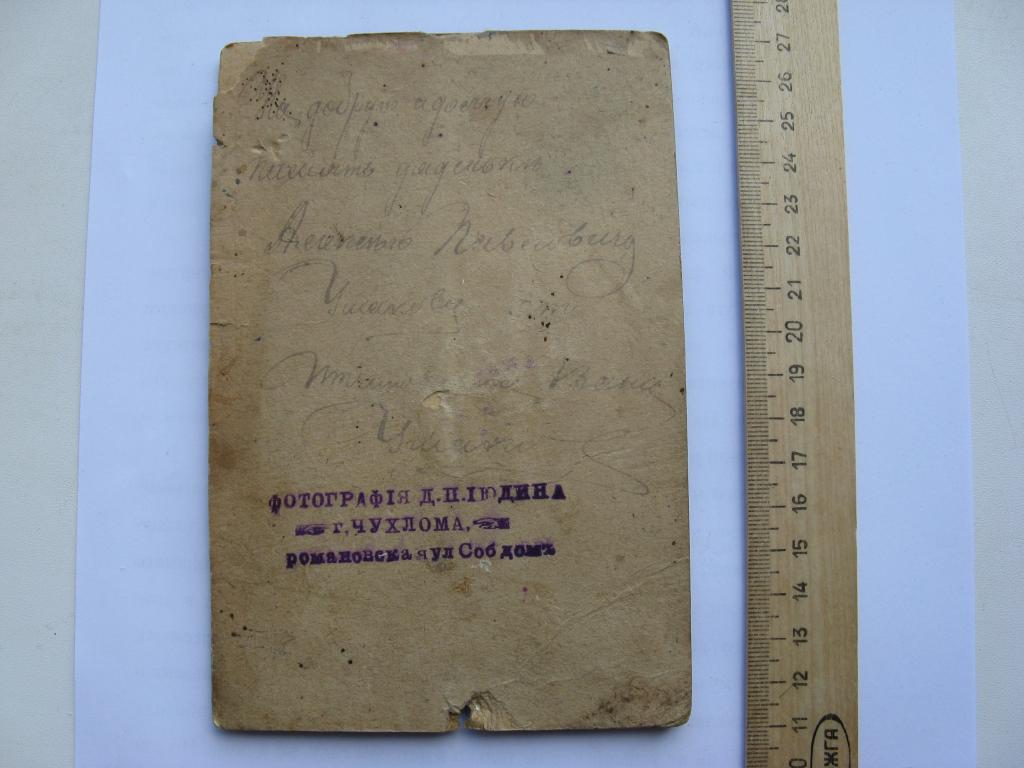 На добрую и долгую
память дядюшкѣ
Павловичу
Ушакову
Ивана
ФОТОГРАФІЯ Д.П.ІЮДИНА
г. ЧУХЛОМА,
романовская ул Соб домъ
28
27
26
25
24
23
22
21
20
19
18
17
16
15
14
13
12
11
0
ЖГА